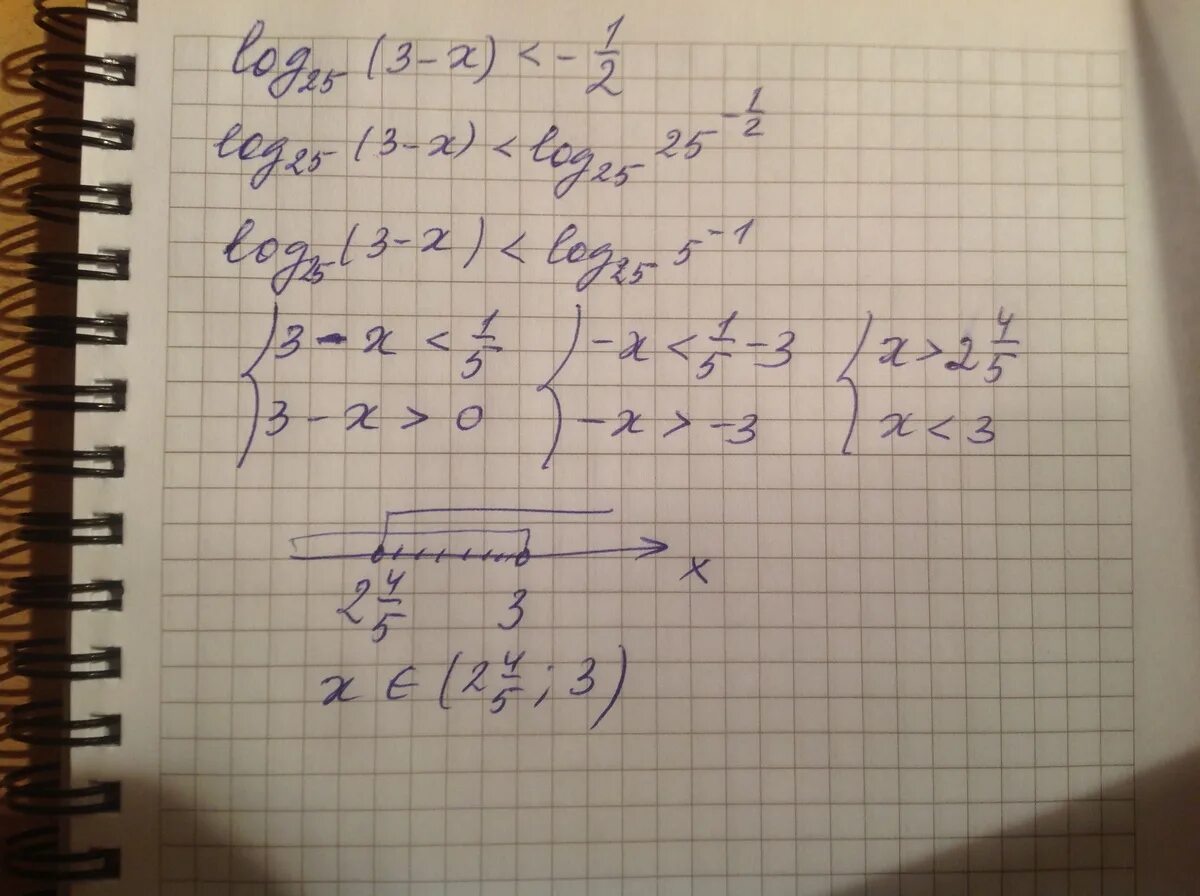 log₂₅ (3 - x) < - 1/2
log₂₅ (3 - x) < log₂₅ 25^(-1/2)
log₂₅ (3 - x) < log₂₅ 5⁻¹
{ 3 - x < 1/5 { -x < 1/5 - 3 { x > 2 4/5
{ 3 - x > 0 { -x > -3 { x < 3
x
2 4/5 3
x ∈ (2 4/5 ; 3)